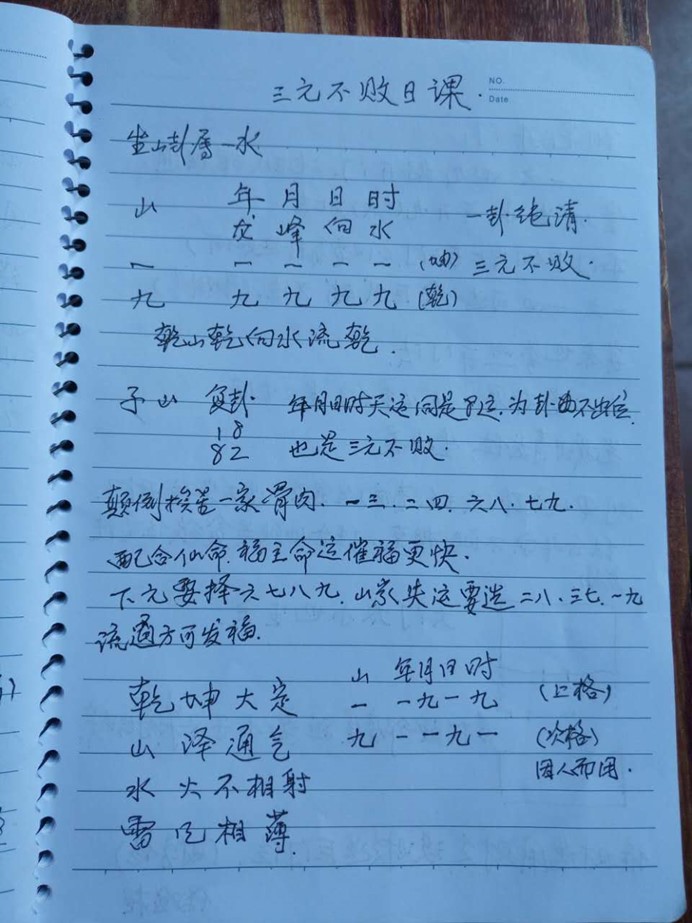 三元不败日课.
NO.
Date
坐山卦属一水
山 年 月 日 时
龙 峰 向 水 一卦纯清.
一 一 一 一 一 (坤) 三元不败.
九 九 九 九 九 (乾)
乾山乾向水流乾.
子山 复卦. 年月日时天运同是8运.为卦不出位.
18
82 也是三元不败.
颠倒挨星一家骨肉. 一三.二四.六八.七九.
配合仙命.福主命运催福更快.
下元要择六七八九.山家失运要选二八.三七.一九
流通方可发福.
山 年月日时
乾坤大定 一 一九一九 (上格)
山泽通气 九 一一九一 (次格)
因人而用.
水火不相射
雷风相薄.